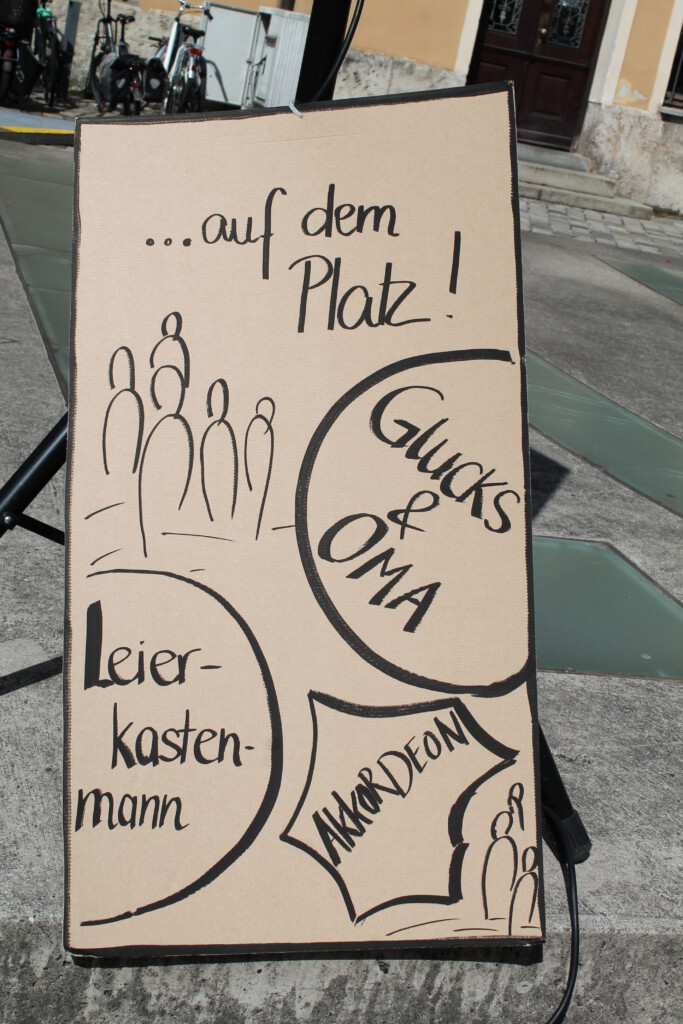 ...auf dem
Platz!
Glucks
&
OMA
Leier-
kasten-
mann
AKKORDEON